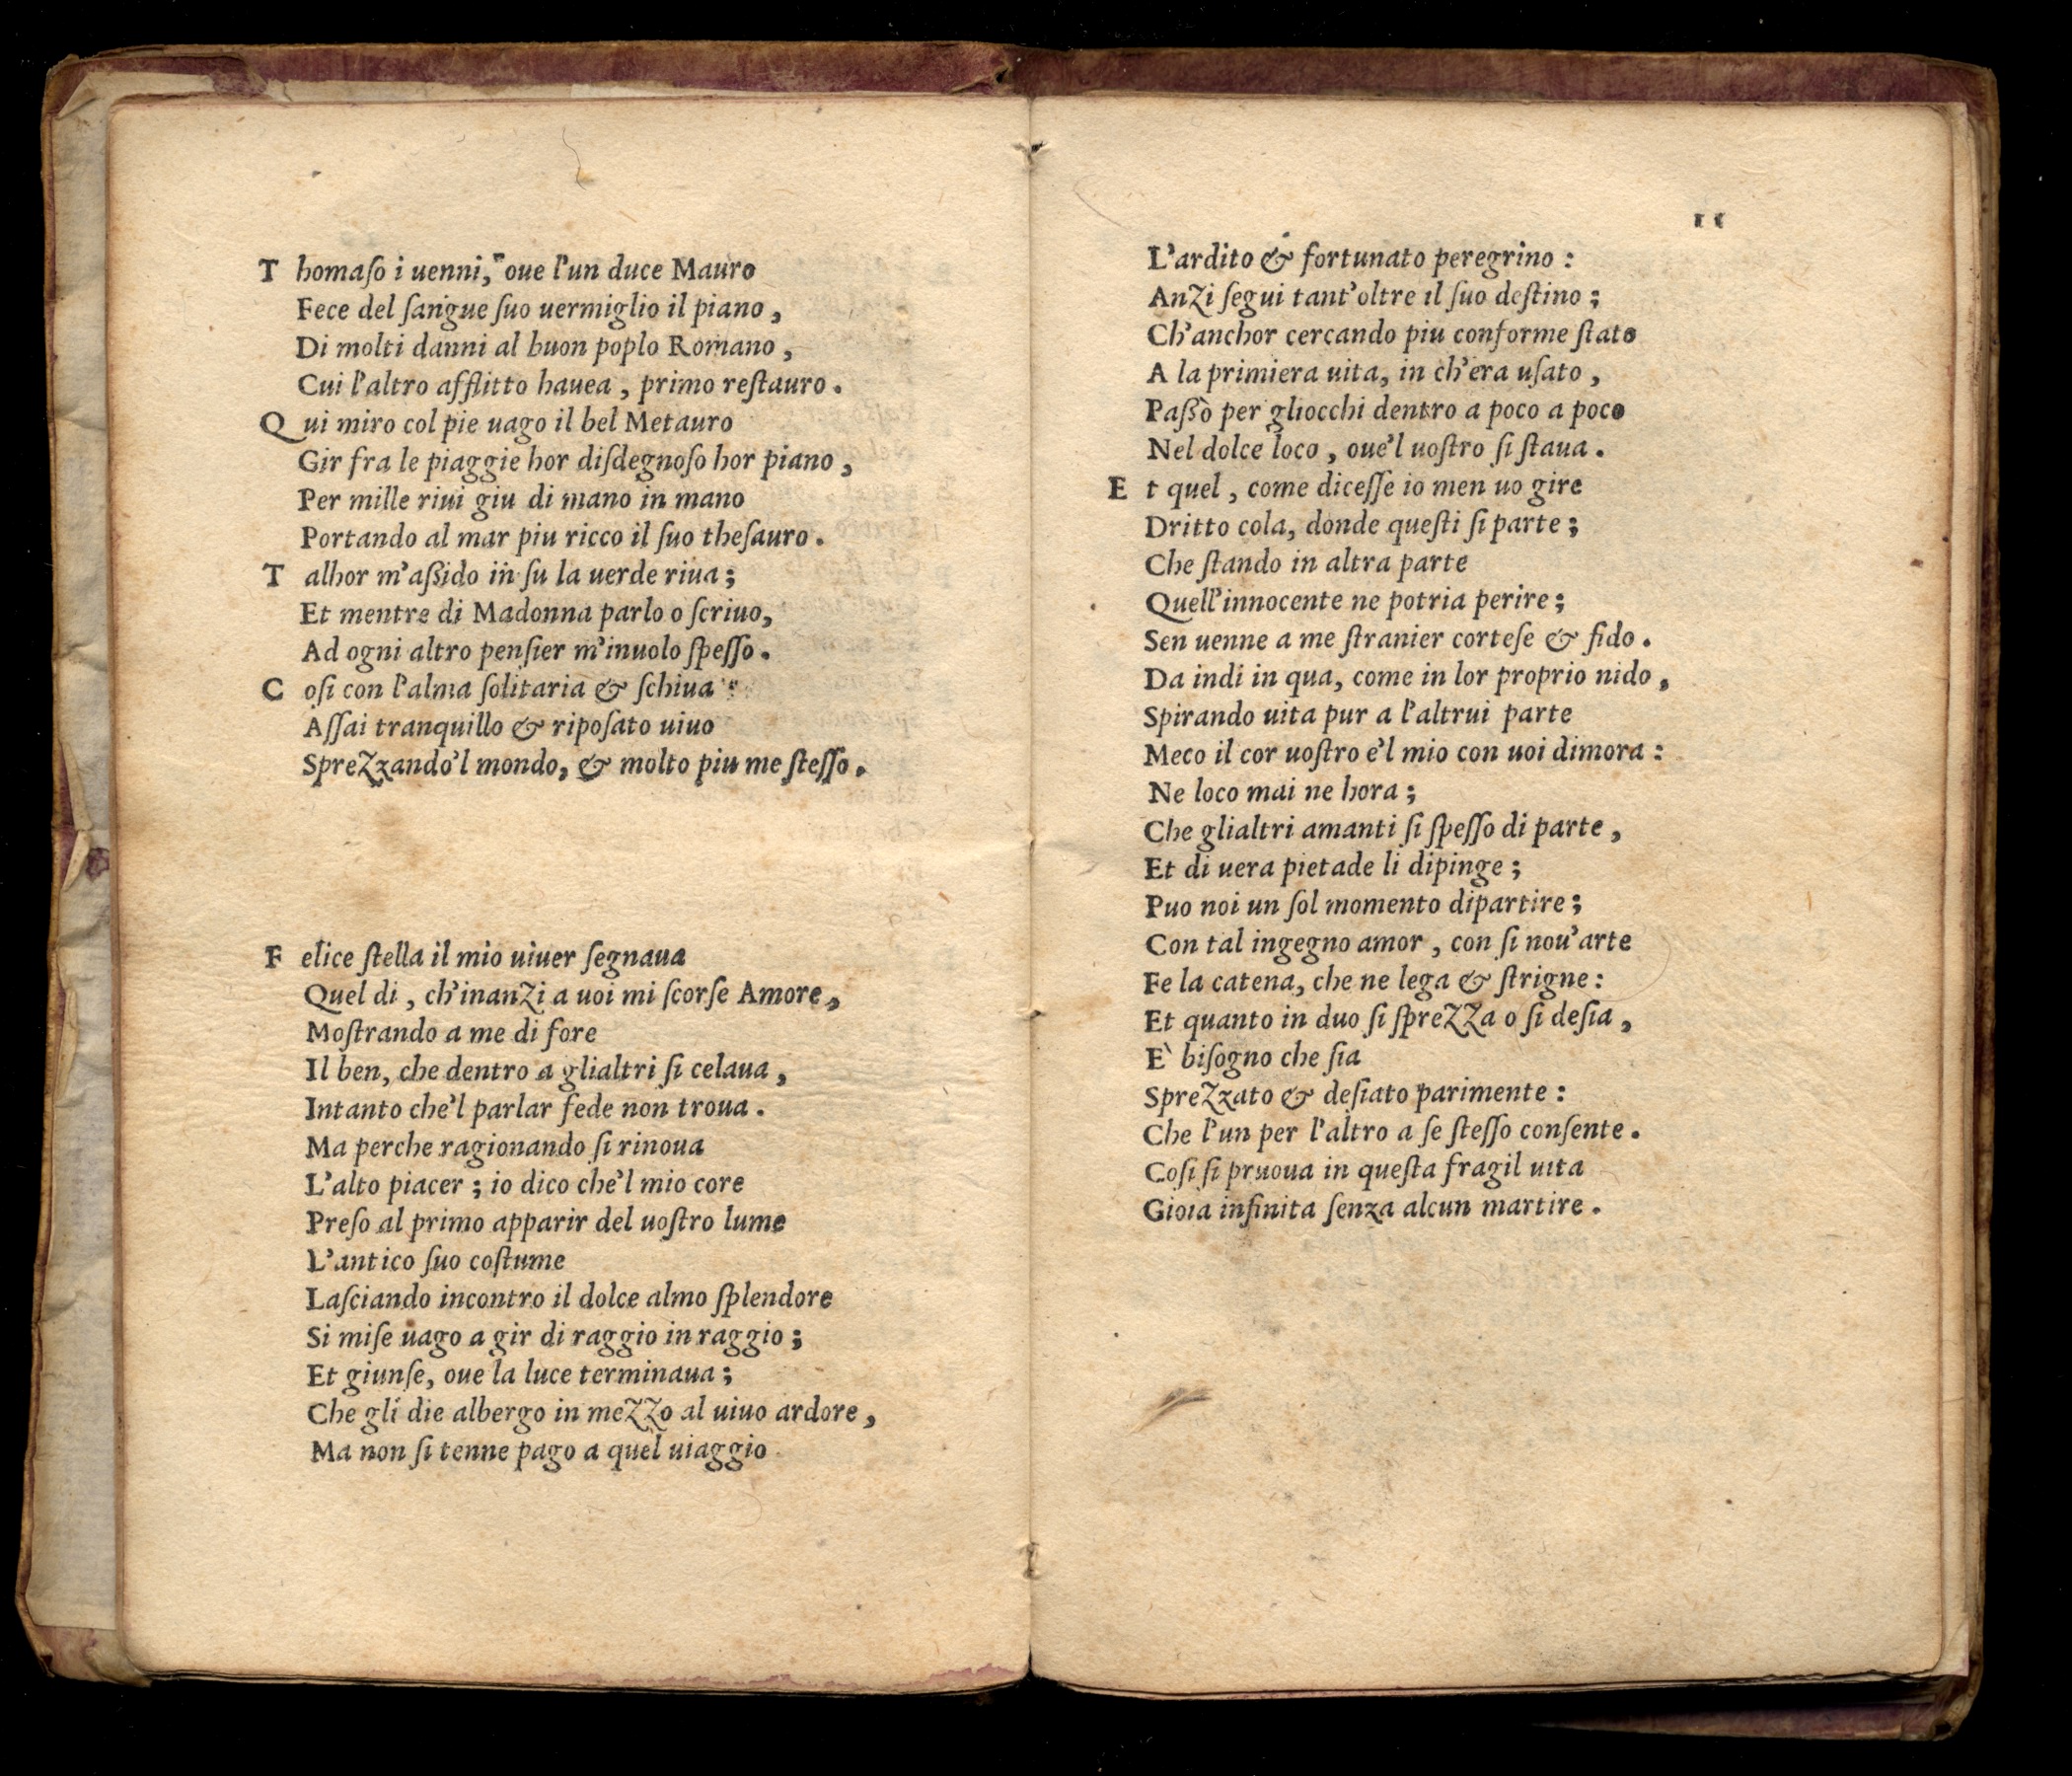 T homaſo i uenni, oue l'un duce Mauro
Fece del ſangue ſuo uermiglio il piano,
Di molti danni al buon poplo Romano,
Cui l'altro afflitto hauea, primo reſtauro.
Q ui miro col pie uago il bel Metauro
Gir fra le piaggie hor diſdegnoſo hor piano,
Per mille riui giu di mano in mano
Portando al mar piu ricco il ſuo theſauro.
T alhor m'aßido in ſu la uerde riua;
Et mentre di Madonna parlo o ſcriuo,
Ad ogni altro penſier m'inuolo ſpeſſo.
C oſi con l'alma ſolitaria & ſchiua
Aſſai tranquillo & ripoſato uiuo
Sprezzando'l mondo, & molto piu me ſteſſo.
F elice ſtella il mio uiuer ſegnaua
Quel di, ch'inanzi a uoi mi ſcorſe Amore,
Moſtrando a me di fore
Il ben, che dentro a glialtri ſi celaua,
Intanto che'l parlar fede non troua.
Ma perche ragionando ſi rinoua
L'alto piacer; io dico che'l mio core
Preſo al primo apparir del uoſtro lume
L'antico ſuo coſtume
Laſciando incontro il dolce almo ſplendore
Si miſe uago a gir di raggio in raggio;
Et giunſe, oue la luce terminaua;
Che gli die albergo in mezzo al uiuo ardore,
Ma non ſi tenne pago a quel uiaggio
11
L'ardito & fortunato peregrino:
Anzi ſegui tant'oltre il ſuo deſtino;
Ch'anchor cercando piu conforme ſtato
A la primiera uita, in ch'era uſato,
Paßò per gliocchi dentro a poco a poco
Nel dolce loco, oue'l uoſtro ſi ſtaua.
E t quel, come diceſſe io men uo gire
Dritto cola, donde queſti ſi parte;
Che ſtando in altra parte
Quell'innocente ne potria perire;
Sen uenne a me ſtranier corteſe & fido.
Da indi in qua, come in lor proprio nido,
Spirando uita pur a l'altrui parte
Meco il cor uoſtro e'l mio con uoi dimora:
Ne loco mai ne hora;
Che glialtri amanti ſi ſpeſſo di parte,
Et di uera pietade li dipinge;
Puo noi un ſol momento dipartire;
Con tal ingegno amor, con ſi nou'arte
Fe la catena, che ne lega & ſtrigne:
Et quanto in duo ſi ſprezza o ſi deſia,
È biſogno che ſia
Sprezzato & deſiato parimente:
Che l'un per l'altro a ſe ſteſſo conſente.
Coſi ſi pruoua in queſta fragil uita
Gioia infinita ſenza alcun martire.